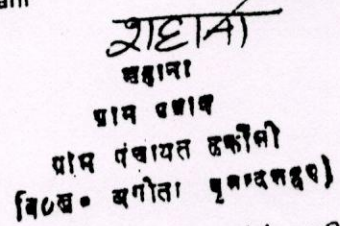 शहाना
शहाना
ग्राम प्रधान
ग्राम पंचायत ढकौली
(वि०ख० अगोता बुलन्दशहर)